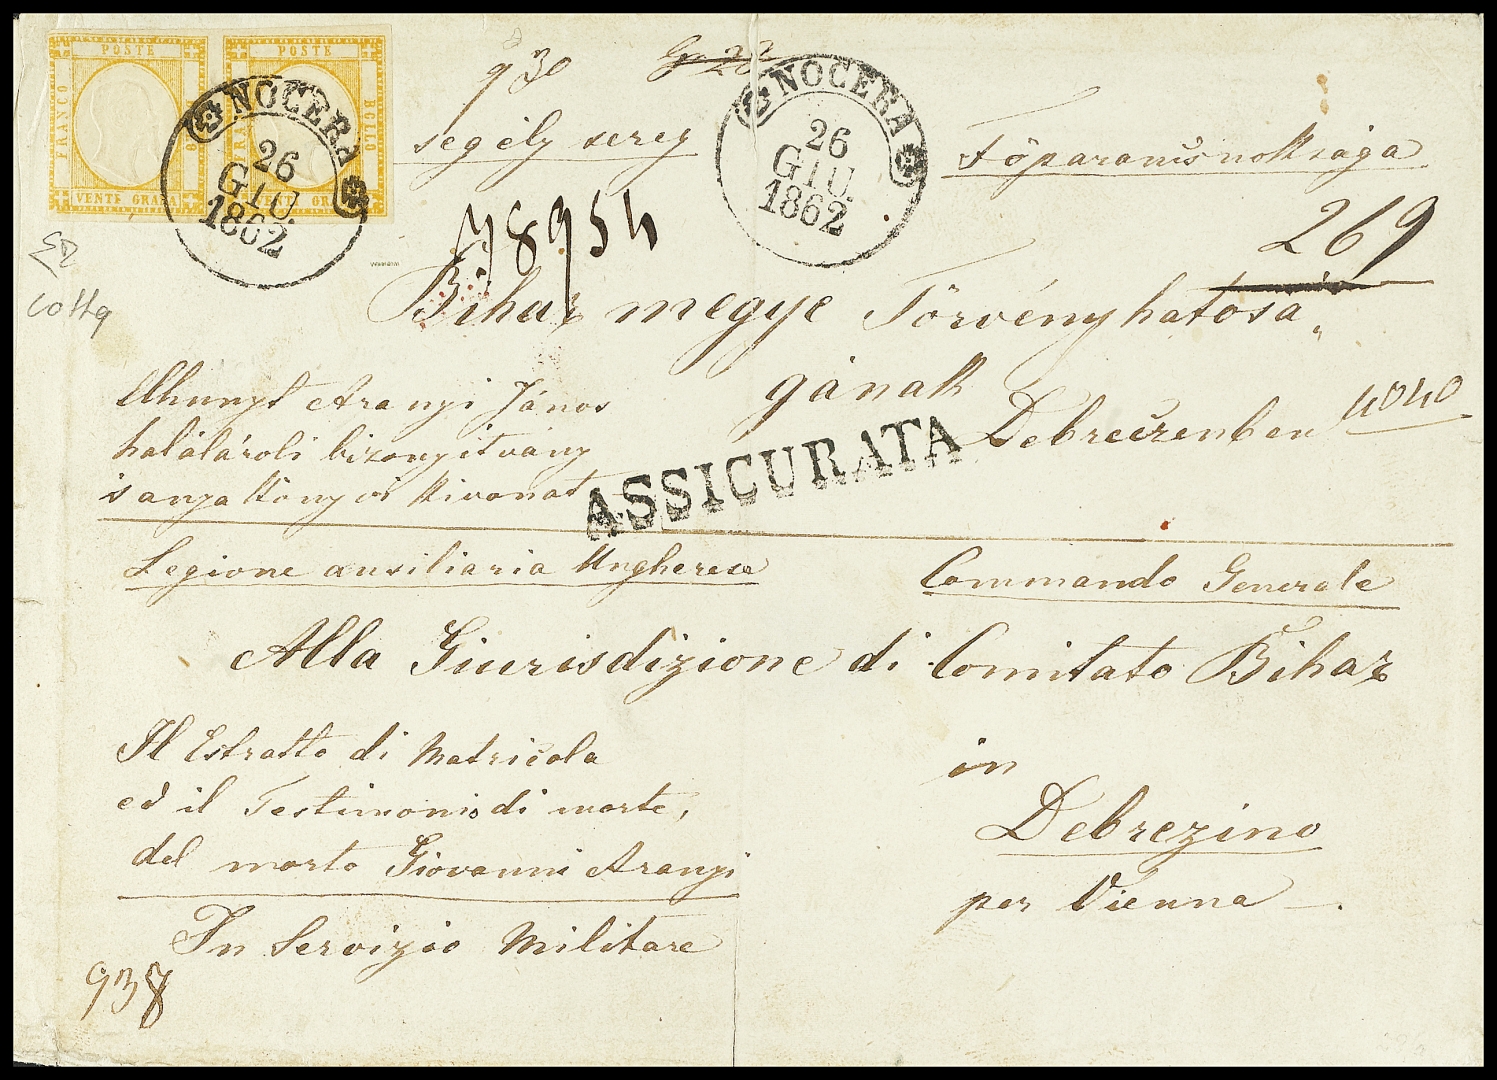 POSTE
POSTE
FRANCO
BOLLO
VENTE GRANA
VENTE GRANA
NOCERA
26
GIU.
1862
NOCERA
26
GIU.
1862
930
segély sereg
Főparancsnoksága
78954
269
Bihar megye Törvényhatósá„
gának
Debreczenben
4040
Elhunyt Aranyi János
halálároli bizonyitvány
's anyakönyvi kivonat
ASSICURATA
cotta
Legione ausiliaria Ungherese
Commando Generale
Alla Giurisdizione di Comitato Bihar
Il Estratto di Matricola
ed il Testimonio di morte,
del morto Giovanni Aranyi
in
Debrezino
per Vienna
In Servizio Militare
938